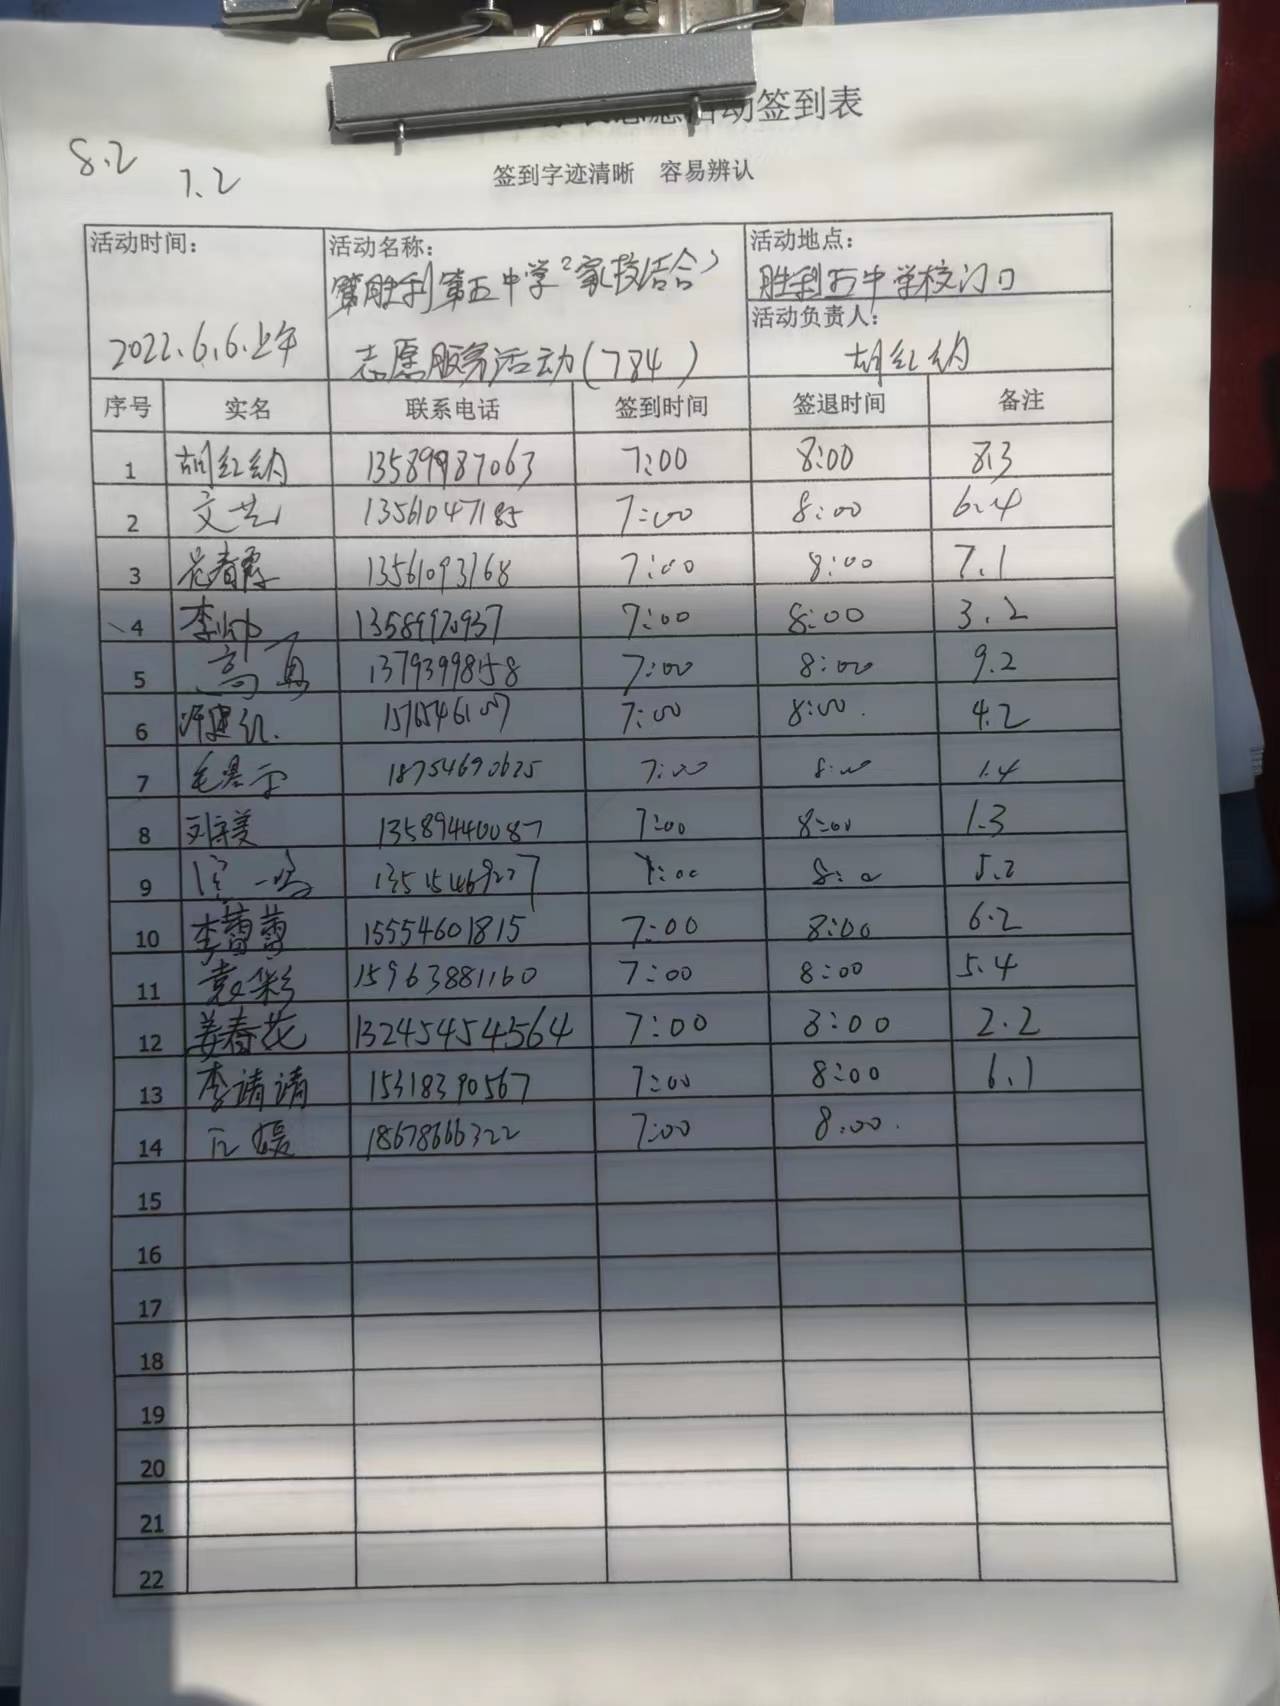 活动签到表
签到字迹清晰 容易辨认
8.2
7.2
活动时间:
2022.6.6.上午
活动名称:
胜利第五中学"家校结合"
志愿服务活动(784)
活动地点:
胜利五中学校门口
活动负责人:
胡红纳
序号 实名 联系电话 签到时间 签退时间 备注
1 胡红纳 13589987063 7:00 8:00 8.3
2 文艺 13561047185 7:00 8:00 6.4
3 13561093168 7:00 8:00 7.1
4 李帅 13589970937 7:00 8:00 3.2
5 高真 13793998158 7:00 8:00 9.2
6 7:00 8:00. 4.2
7 18754690625 7:00 8:00 1.4
8 13589440087 7:00 8:00 1.3
9 7:00 5.2
10 李蕾蕾 15554601815 7:00 8:00 6.2
11 袁彩 15963881160 7:00 8:00 5.4
12 姜春花 13245454564 7:00 8:00 2.2
13 李请请 15318390567 7:00 8:00 6.1
14 媛 18678666322 7:00 8:00.
15
16
17
18
19
20
21
22